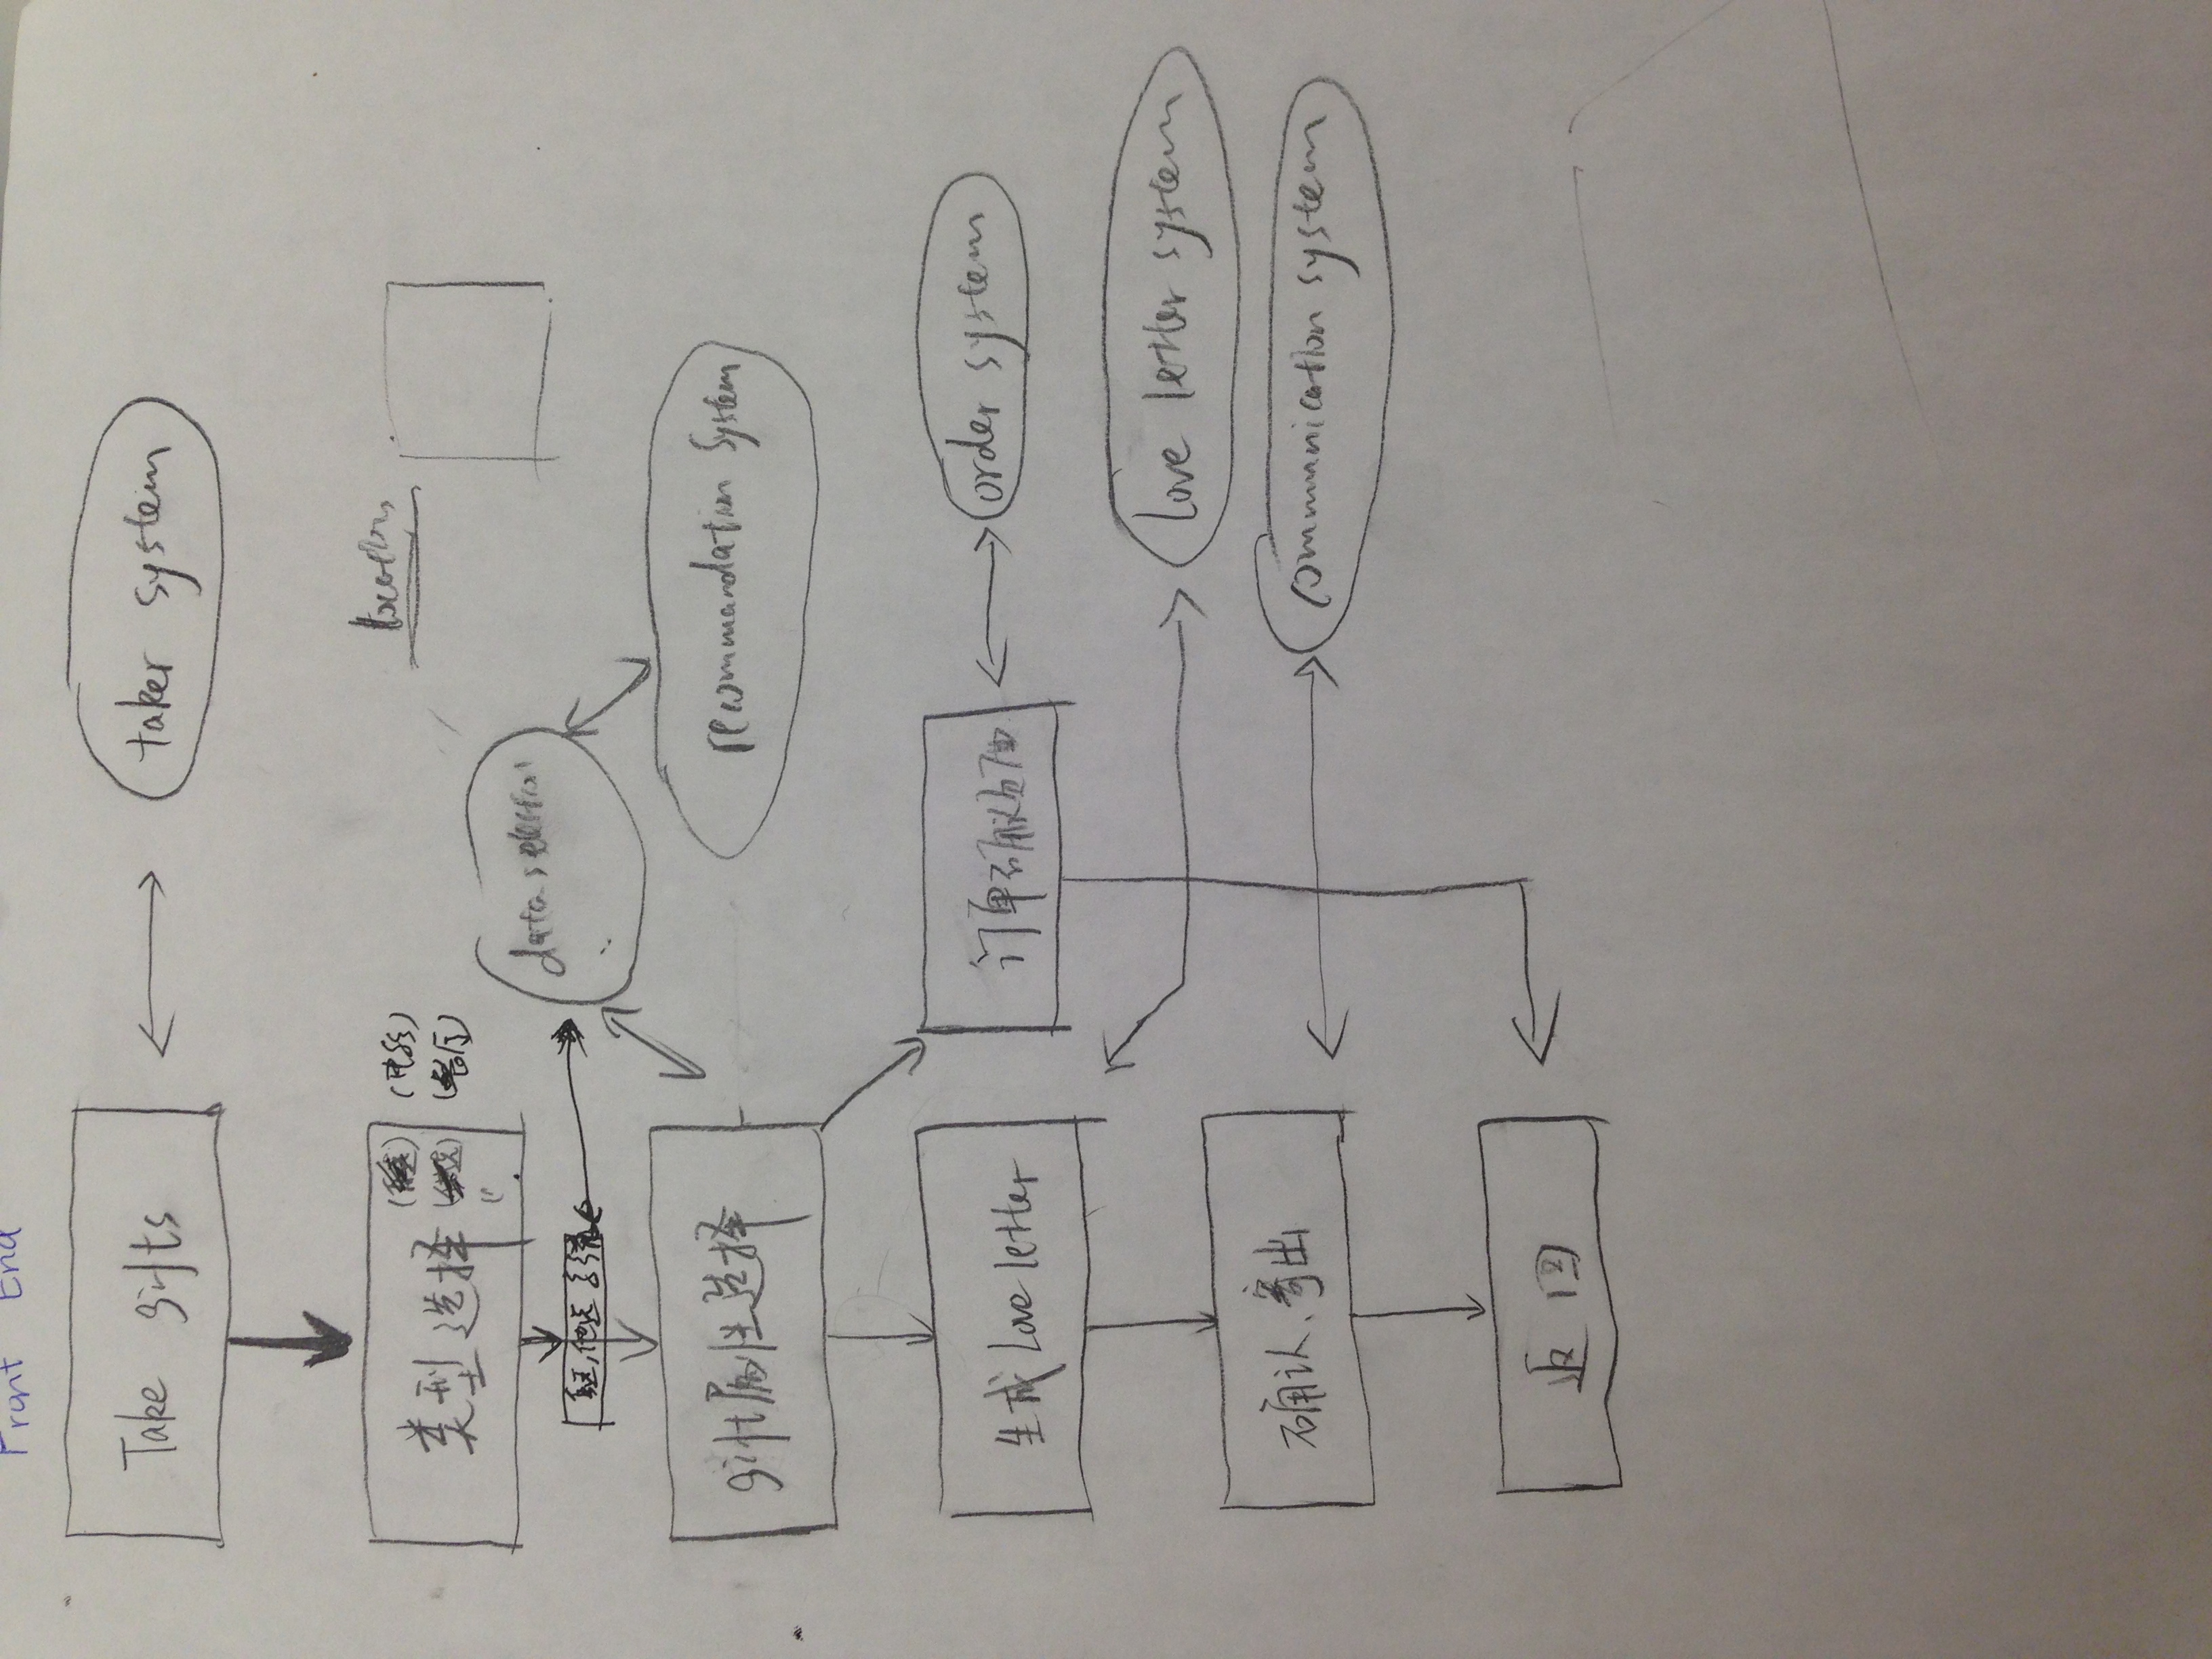 Front End
Take gifts
taker system
类型选择
location
data selection
gift属性选择
recommandation System
生成 Love letter
订单确认页面
order system
love letter system
确认、寄出
communication system
返回